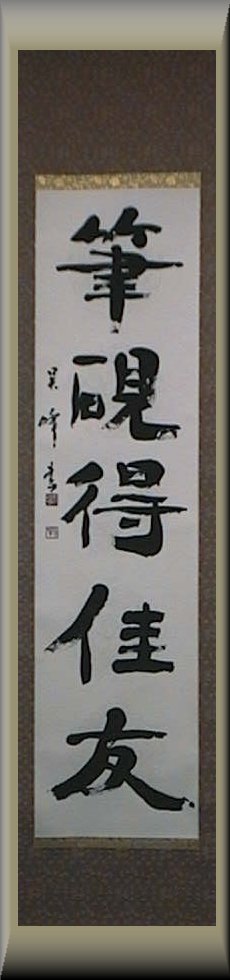 筆硯得佳友
峰書